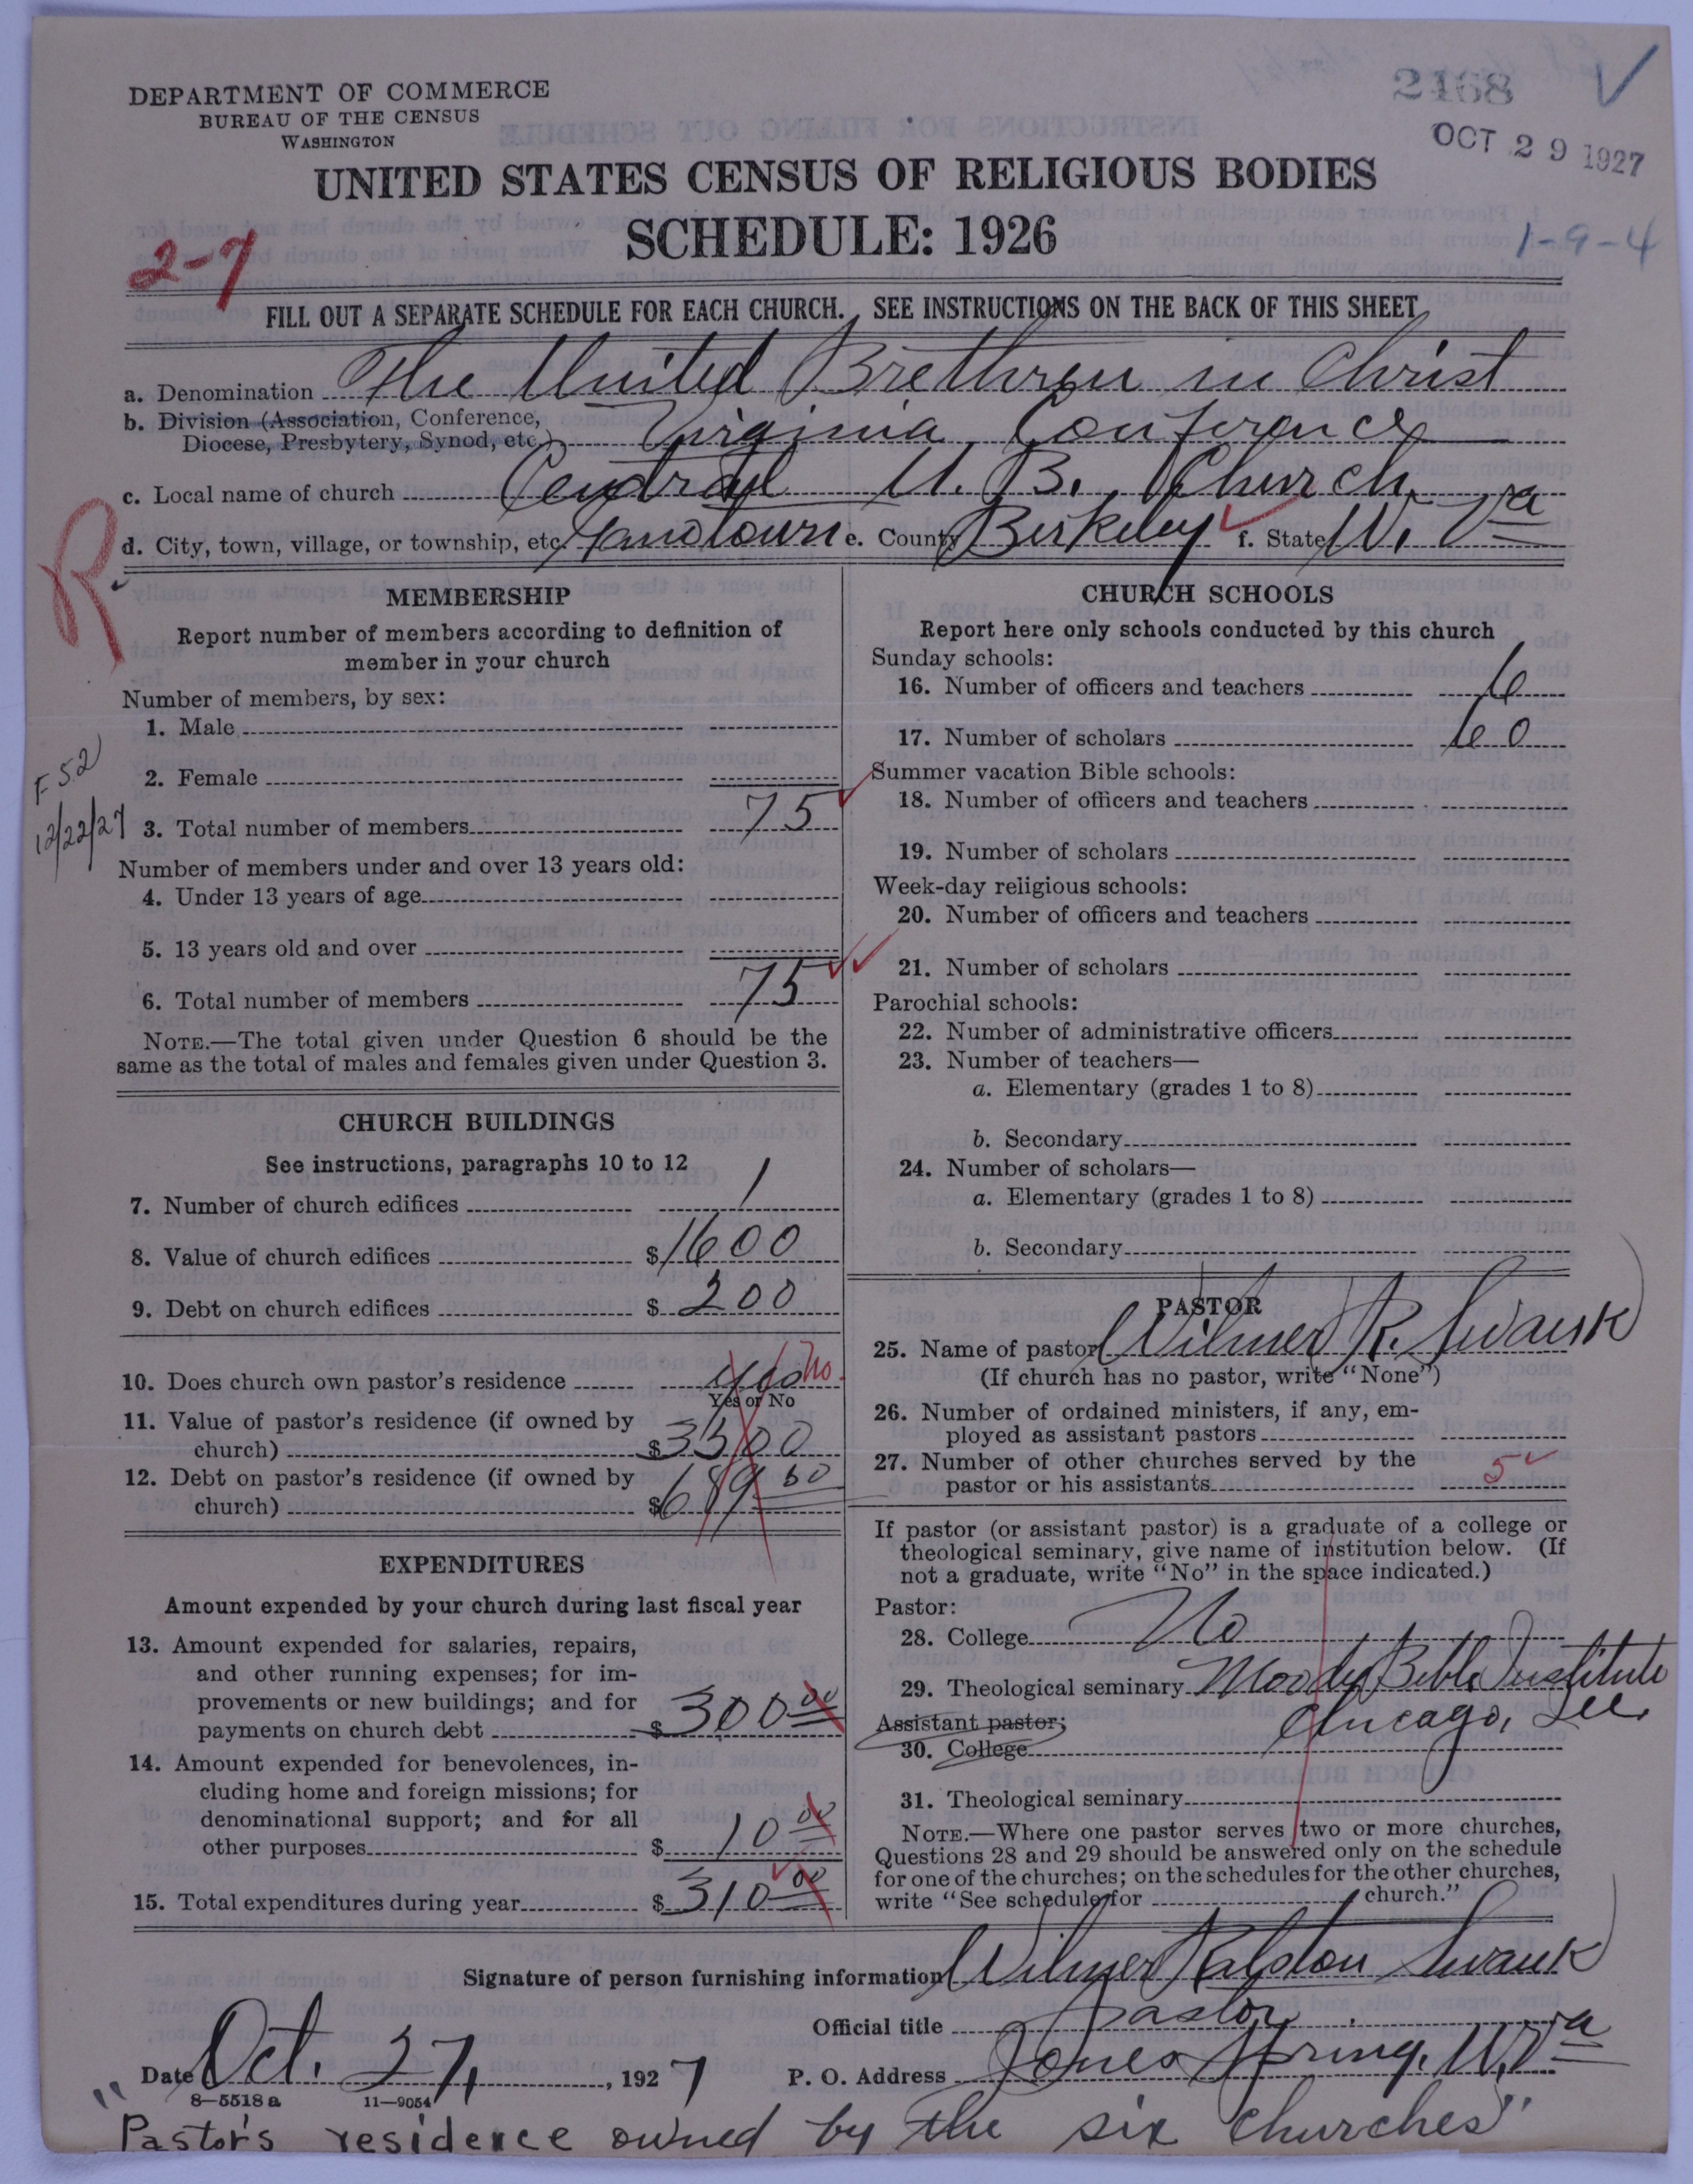 DEPARTMENT OF COMMERCE
BUREAU OF THE CENSUS
WASHINGTON
2168
OCT 29 1927
UNITED STATES CENSUS OF RELIGIOUS BODIES
SCHEDULE: 1926
1-9-4
2-7
FILL OUT A SEPARATE SCHEDULE FOR EACH CHURCH. SEE INSTRUCTIONS ON THE BACK OF THIS SHEET
a. Denomination The United Brethren in Christ
b. Division (Association, Conference, Diocese, Presbytery, Synod, etc.) Virginia Conference
c. Local name of church Central U. B. Church
d. City, town, village, or township, etc. e. County Berkeley f. State W. Va
R
MEMBERSHIP
Report number of members according to definition of
member in your church
Number of members, by sex:
1. Male
2. Female
F 52
12/22/27
3. Total number of members 75
Number of members under and over 13 years old:
4. Under 13 years of age
5. 13 years old and over
6. Total number of members 75
NOTE.—The total given under Question 6 should be the
same as the total of males and females given under Question 3.
CHURCH BUILDINGS
See instructions, paragraphs 10 to 12
7. Number of church edifices 1
8. Value of church edifices $1600
9. Debt on church edifices $200
10. Does church own pastor's residence Yes No
Yes or No
11. Value of pastor's residence (if owned by
church) $3500
12. Debt on pastor's residence (if owned by
church) $689 60
EXPENDITURES
Amount expended by your church during last fiscal year
13. Amount expended for salaries, repairs,
and other running expenses; for im-
provements or new buildings; and for
payments on church debt $300 00
14. Amount expended for benevolences, in-
cluding home and foreign missions; for
denominational support; and for all
other purposes $10 00
15. Total expenditures during year $310 00
CHURCH SCHOOLS
Report here only schools conducted by this church
Sunday schools:
16. Number of officers and teachers 6
17. Number of scholars 60
Summer vacation Bible schools:
18. Number of officers and teachers
19. Number of scholars
Week-day religious schools:
20. Number of officers and teachers
21. Number of scholars
Parochial schools:
22. Number of administrative officers
23. Number of teachers—
a. Elementary (grades 1 to 8)
b. Secondary
24. Number of scholars—
a. Elementary (grades 1 to 8)
b. Secondary
PASTOR
25. Name of pastor Wilmer R. Swank
(If church has no pastor, write "None")
26. Number of ordained ministers, if any, em-
ployed as assistant pastors
27. Number of other churches served by the
pastor or his assistants 5
If pastor (or assistant pastor) is a graduate of a college or
theological seminary, give name of institution below. (If
not a graduate, write "No" in the space indicated.)
Pastor:
28. College No
29. Theological seminary Moody Bible Institute
Chicago, Ill.
Assistant pastor:
30. College
31. Theological seminary
NOTE.—Where one pastor serves two or more churches,
Questions 28 and 29 should be answered only on the schedule
for one of the churches; on the schedules for the other churches,
write "See schedule for church."
Signature of person furnishing information Wilmer Ralston Swank
Official title Pastor
Date Oct. 27, 1927 P. O. Address Jones Spring, W. Va
8—5518a 11—9054
"Pastor's residence owned by the six churches"